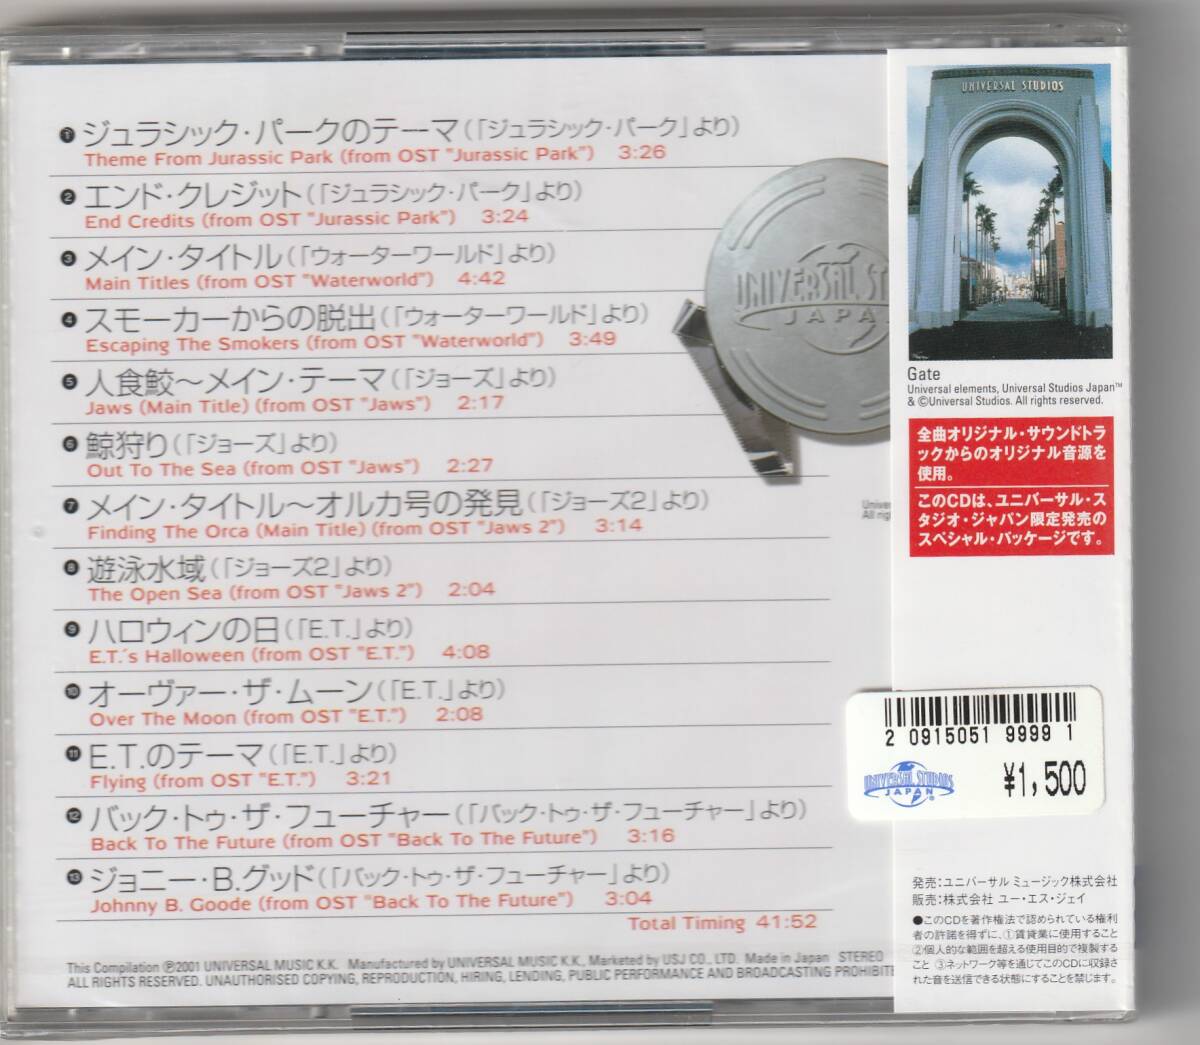 ❶ ジュラシック・パークのテーマ(「ジュラシック・パーク」より)
Theme From Jurassic Park (from OST "Jurassic Park") 3:26
❷ エンド・クレジット(「ジュラシック・パーク」より)
End Credits (from OST "Jurassic Park") 3:24
❸ メイン・タイトル(「ウォーターワールド」より)
Main Titles (from OST "Waterworld") 4:42
❹ スモーカーからの脱出(「ウォーターワールド」より)
Escaping The Smokers (from OST "Waterworld") 3:49
❺ 人食鮫〜メイン・テーマ(「ジョーズ」より)
Jaws (Main Title) (from OST "Jaws") 2:17
❻ 鯨狩り(「ジョーズ」より)
Out To The Sea (from OST "Jaws") 2:27
❼ メイン・タイトル〜オルカ号の発見(「ジョーズ2」より)
Finding The Orca (Main Title) (from OST "Jaws 2") 3:14
❽ 遊泳水域(「ジョーズ2」より)
The Open Sea (from OST "Jaws 2") 2:04
❾ ハロウィンの日(「E.T.」より)
E.T.'s Halloween (from OST "E.T.") 4:08
❿ オーヴァー・ザ・ムーン(「E.T.」より)
Over The Moon (from OST "E.T.") 2:08
⓫ E.T.のテーマ(「E.T.」より)
Flying (from OST "E.T.") 3:21
⓬ バック・トゥ・ザ・フューチャー(「バック・トゥ・ザ・フューチャー」より)
Back To The Future (from OST "Back To The Future") 3:16
⓭ ジョニー・B.グッド(「バック・トゥ・ザ・フューチャー」より)
Johnny B. Goode (from OST "Back To The Future") 3:04
Total Timing 41:52
This Compilation ℗2001 UNIVERSAL MUSIC K.K. Manufactured by UNIVERSAL MUSIC K.K., Marketed by USJ CO., LTD. Made in Japan STEREO
ALL RIGHTS RESERVED. UNAUTHORISED COPYING, REPRODUCTION, HIRING, LENDING, PUBLIC PERFORMANCE AND BROADCASTING PROHIBITE
UNIVERSAL STU
JAPA
Univer
All rig
UNIVERSAL STUDIOS
Gate
Universal elements, Universal Studios Japan™
& ©Universal Studios. All rights reserved.
全曲オリジナル・サウンドトラ
ックからのオリジナル音源を
使用。
このCDは、ユニバーサル・ス
タジオ・ジャパン限定発売の
スペシャル・パッケージです。
2 0915051 9999 1
UNIVERSAL STUDIOS
JAPAN®
¥1,500
発売:ユニバーサル ミュージック株式会社
販売:株式会社 ユー・エス・ジェイ
●このCDを著作権法で認められている権利
者の許諾を得ずに、①賃貸業に使用すること
②個人的な範囲を超える使用目的で複製する
こと ③ネットワーク等を通じてこのCDに収録さ
れた音を送信できる状態にすることを禁じます。